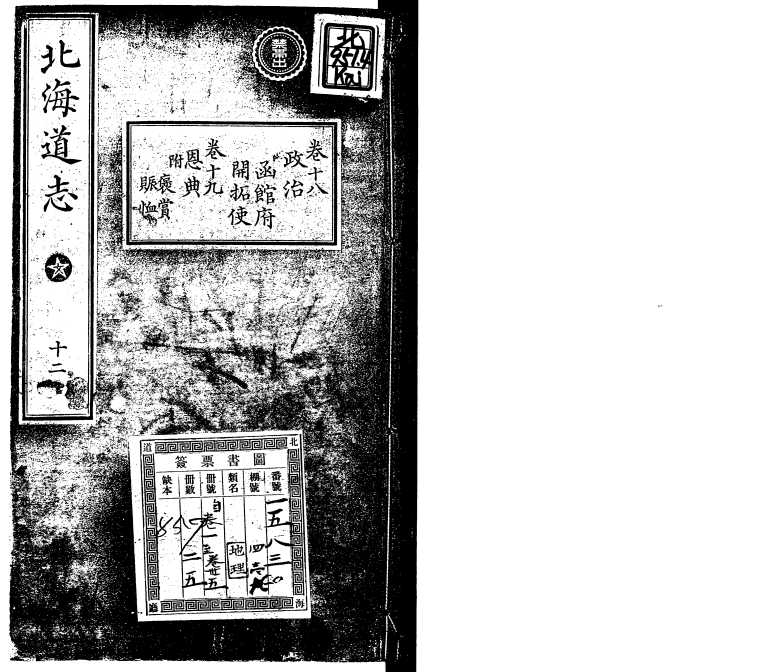 北海道志
十二
卷十八
政治
函館府
開拓使
卷十九
恩典
附
褒賞
賑恤
北
Kai
北海道廳
圖書票簽
番號
一五八三
棚號
四六
類名
地理
冊號
自卷一至卷廿五
冊數
二五
缺本